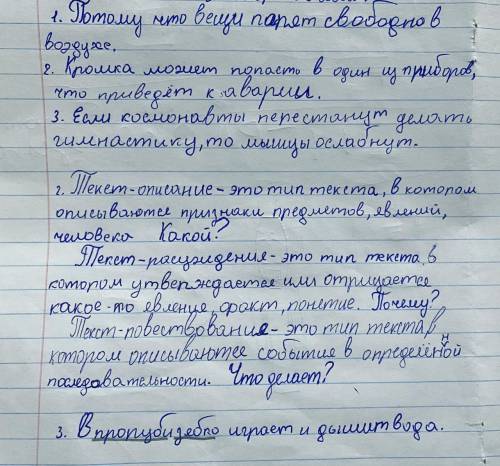 1. Потому что вещи парят свободно в
воздухе.
2. Крошка может попасть в один из приборов,
что приведёт к аварии.
3. Если космонавты перестанут делать
гимнастику, то мышцы ослабнут.
2. Текст-описание - это тип текста, в котором
описываются признаки предметов, явлений,
человека Какой?
Текст-расуждения - это тип текста, в
котором утверждается или отрицается
какое-то явление, факт, понетие. Почему?
Текст-повествования - это тип текста, в
котором описываются события в определённой
последовательности. Что делает?
3. В играет и дышит вода.